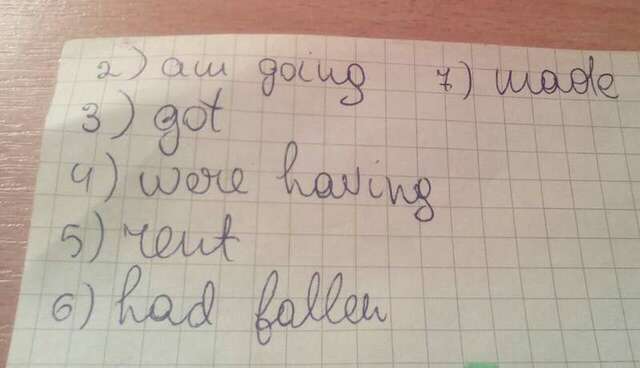 2) am going 7) made
3) got
4) were having
5) rent
6) had fallen